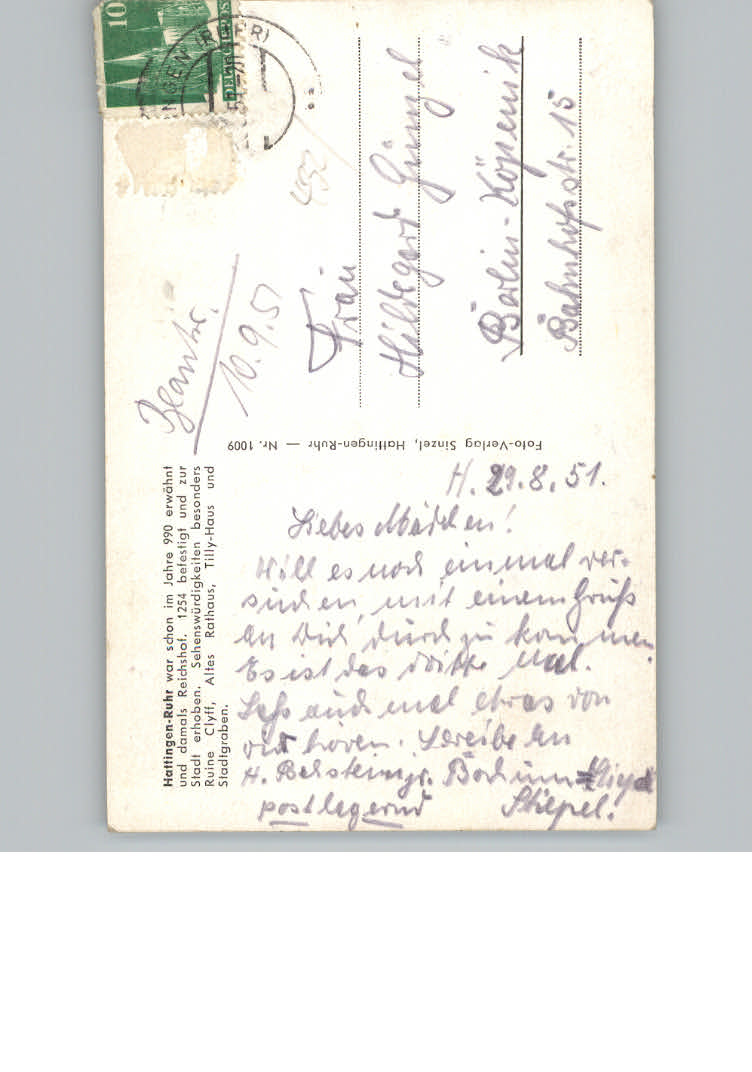 Hattingen-Ruhr war schon im Jahre 990 erwähnt
und damals Reichshof. 1254 befestigt und zur
Stadt erhoben. Sehenswürdigkeiten besonders
Ruine Clyff, Altes Rathaus, Tilly-Haus und
Stadtgraben.
Foto-Verlag Sinzel, Hattingen-Ruhr — Nr. 1009
H. 29.8.51.
Liebes Mädchen!
Will es noch einmal ver-
suchen, mit einem Gruß
an Dich durch zu kommen.
Es ist das dritte Mal.
Laß auch mal etwas von
dir hören. Schreibe an
H. Bochum=
postlagernd Stiepel.
Beantw.
10.9.51
452
Frau
Hildegard Günzel
Berlin-Köpenik
Bahnhofstr. 15
10
(RUHR)